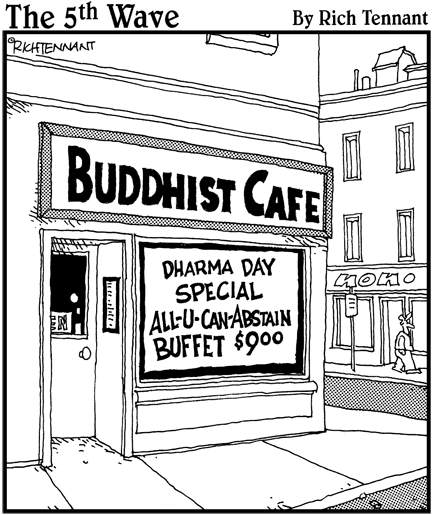 The 5th Wave By Rich Tennant
©RICHTENNANT
BUDDHIST CAFE
DHARMA DAY
SPECIAL
ALL-U-CAN-ABSTAIN
BUFFET $9.00
EN